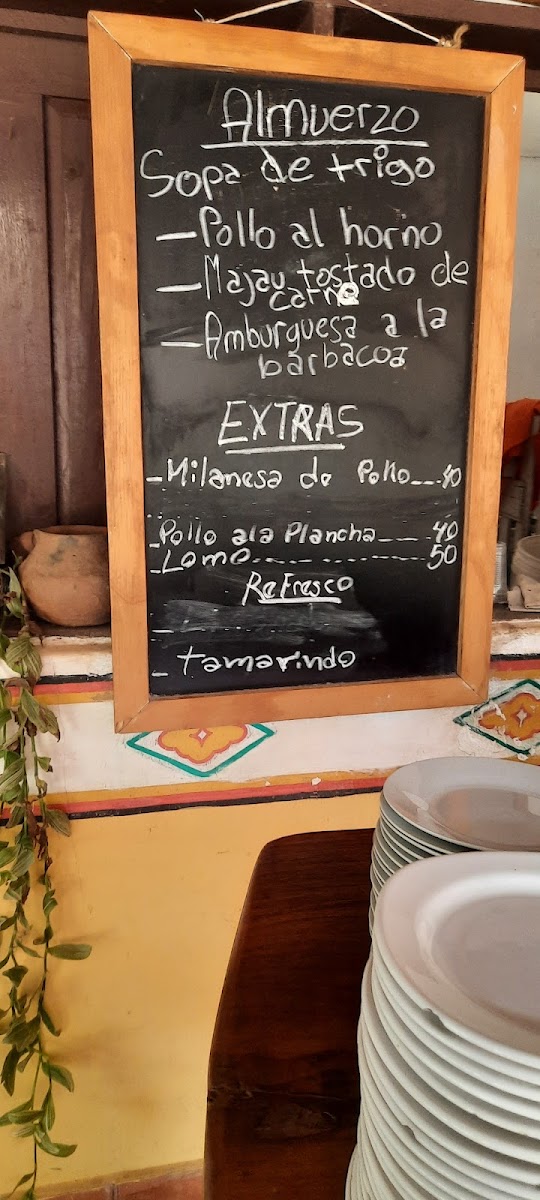 Almuerzo
Sopa de trigo
- Pollo al horno
- Majau tostado de
carne
- Amburguesa a la
barbacoa
EXTRAS
- Milanesa de Pollo__.40
- Pollo ala Plancha____40
- Lomo............50
Refresco
-
- tamarindo